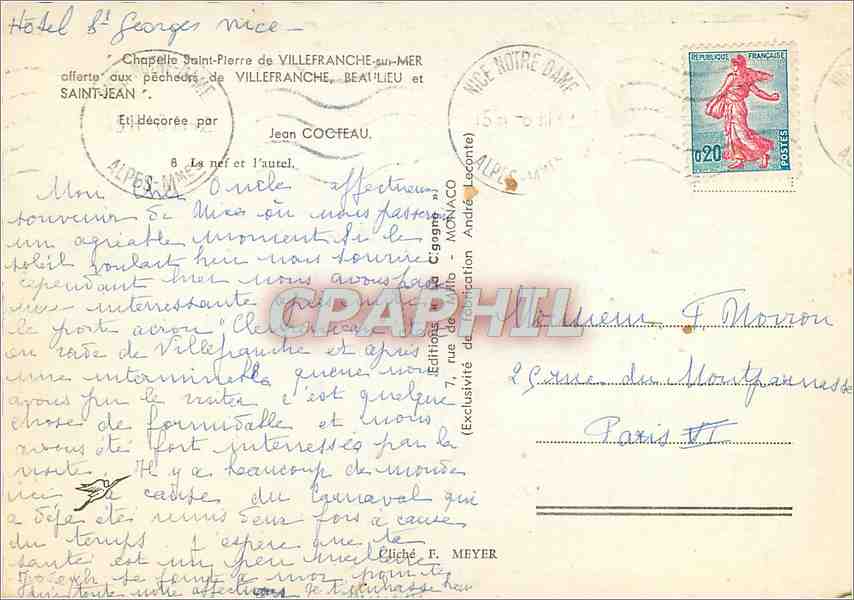 Hotel St Georges Nice –
"Chapelle Saint-Pierre de VILLEFRANCHE-sur-MER
offerte aux pêcheurs de VILLEFRANCHE, BEAULIEU et
SAINT-JEAN".
Et décorée par
Jean COCTEAU.
8 La nef et l'autel.
Mon cher Oncle affectueux
souvenir de Nice où nous passerons
un agréable moment si le
soleil voulait bien nous sourire
cependant hier nous avons passé
une interressante après midi
le porte avion "Clemenceau"
en rade de Villefranche et après
une interminable queue nous
avons pu le visiter c'est quelque
chose de formidable et nous
avons été fort interressés par la
visite. Il y a beaucoup de monde
ici à cause du Carnaval qui
a déjà été remis deux fois à cause
du temps. J'espère que ta
santé est un peu meilleure
Joseph se joint à moi pour te
toute notre affection Je t'embrasse bien
Cliché F. MEYER
Editions "La Cigogne"
7, rue de Millo - MONACO
(Exclusivité de fabrication André Leconte)
NICE NOTRE DAME
ALPES-MMES
REPUBLIQUE FRANÇAISE
0,20
POSTES
Monsieur F. Noiron
29 rue du Montparnasse
Paris VI
CPARHIL